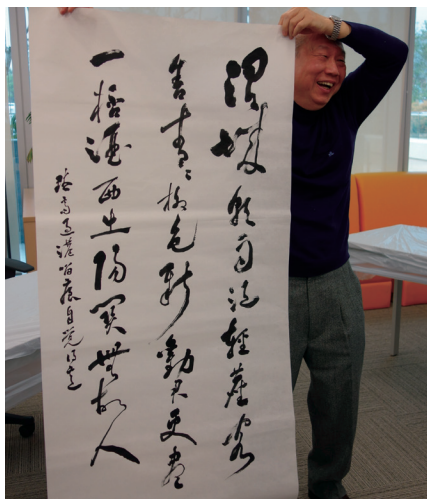 渭城朝雨浥輕塵客
舍青々柳色新勸君更盡
一桮酒西出陽關無故人
自覺